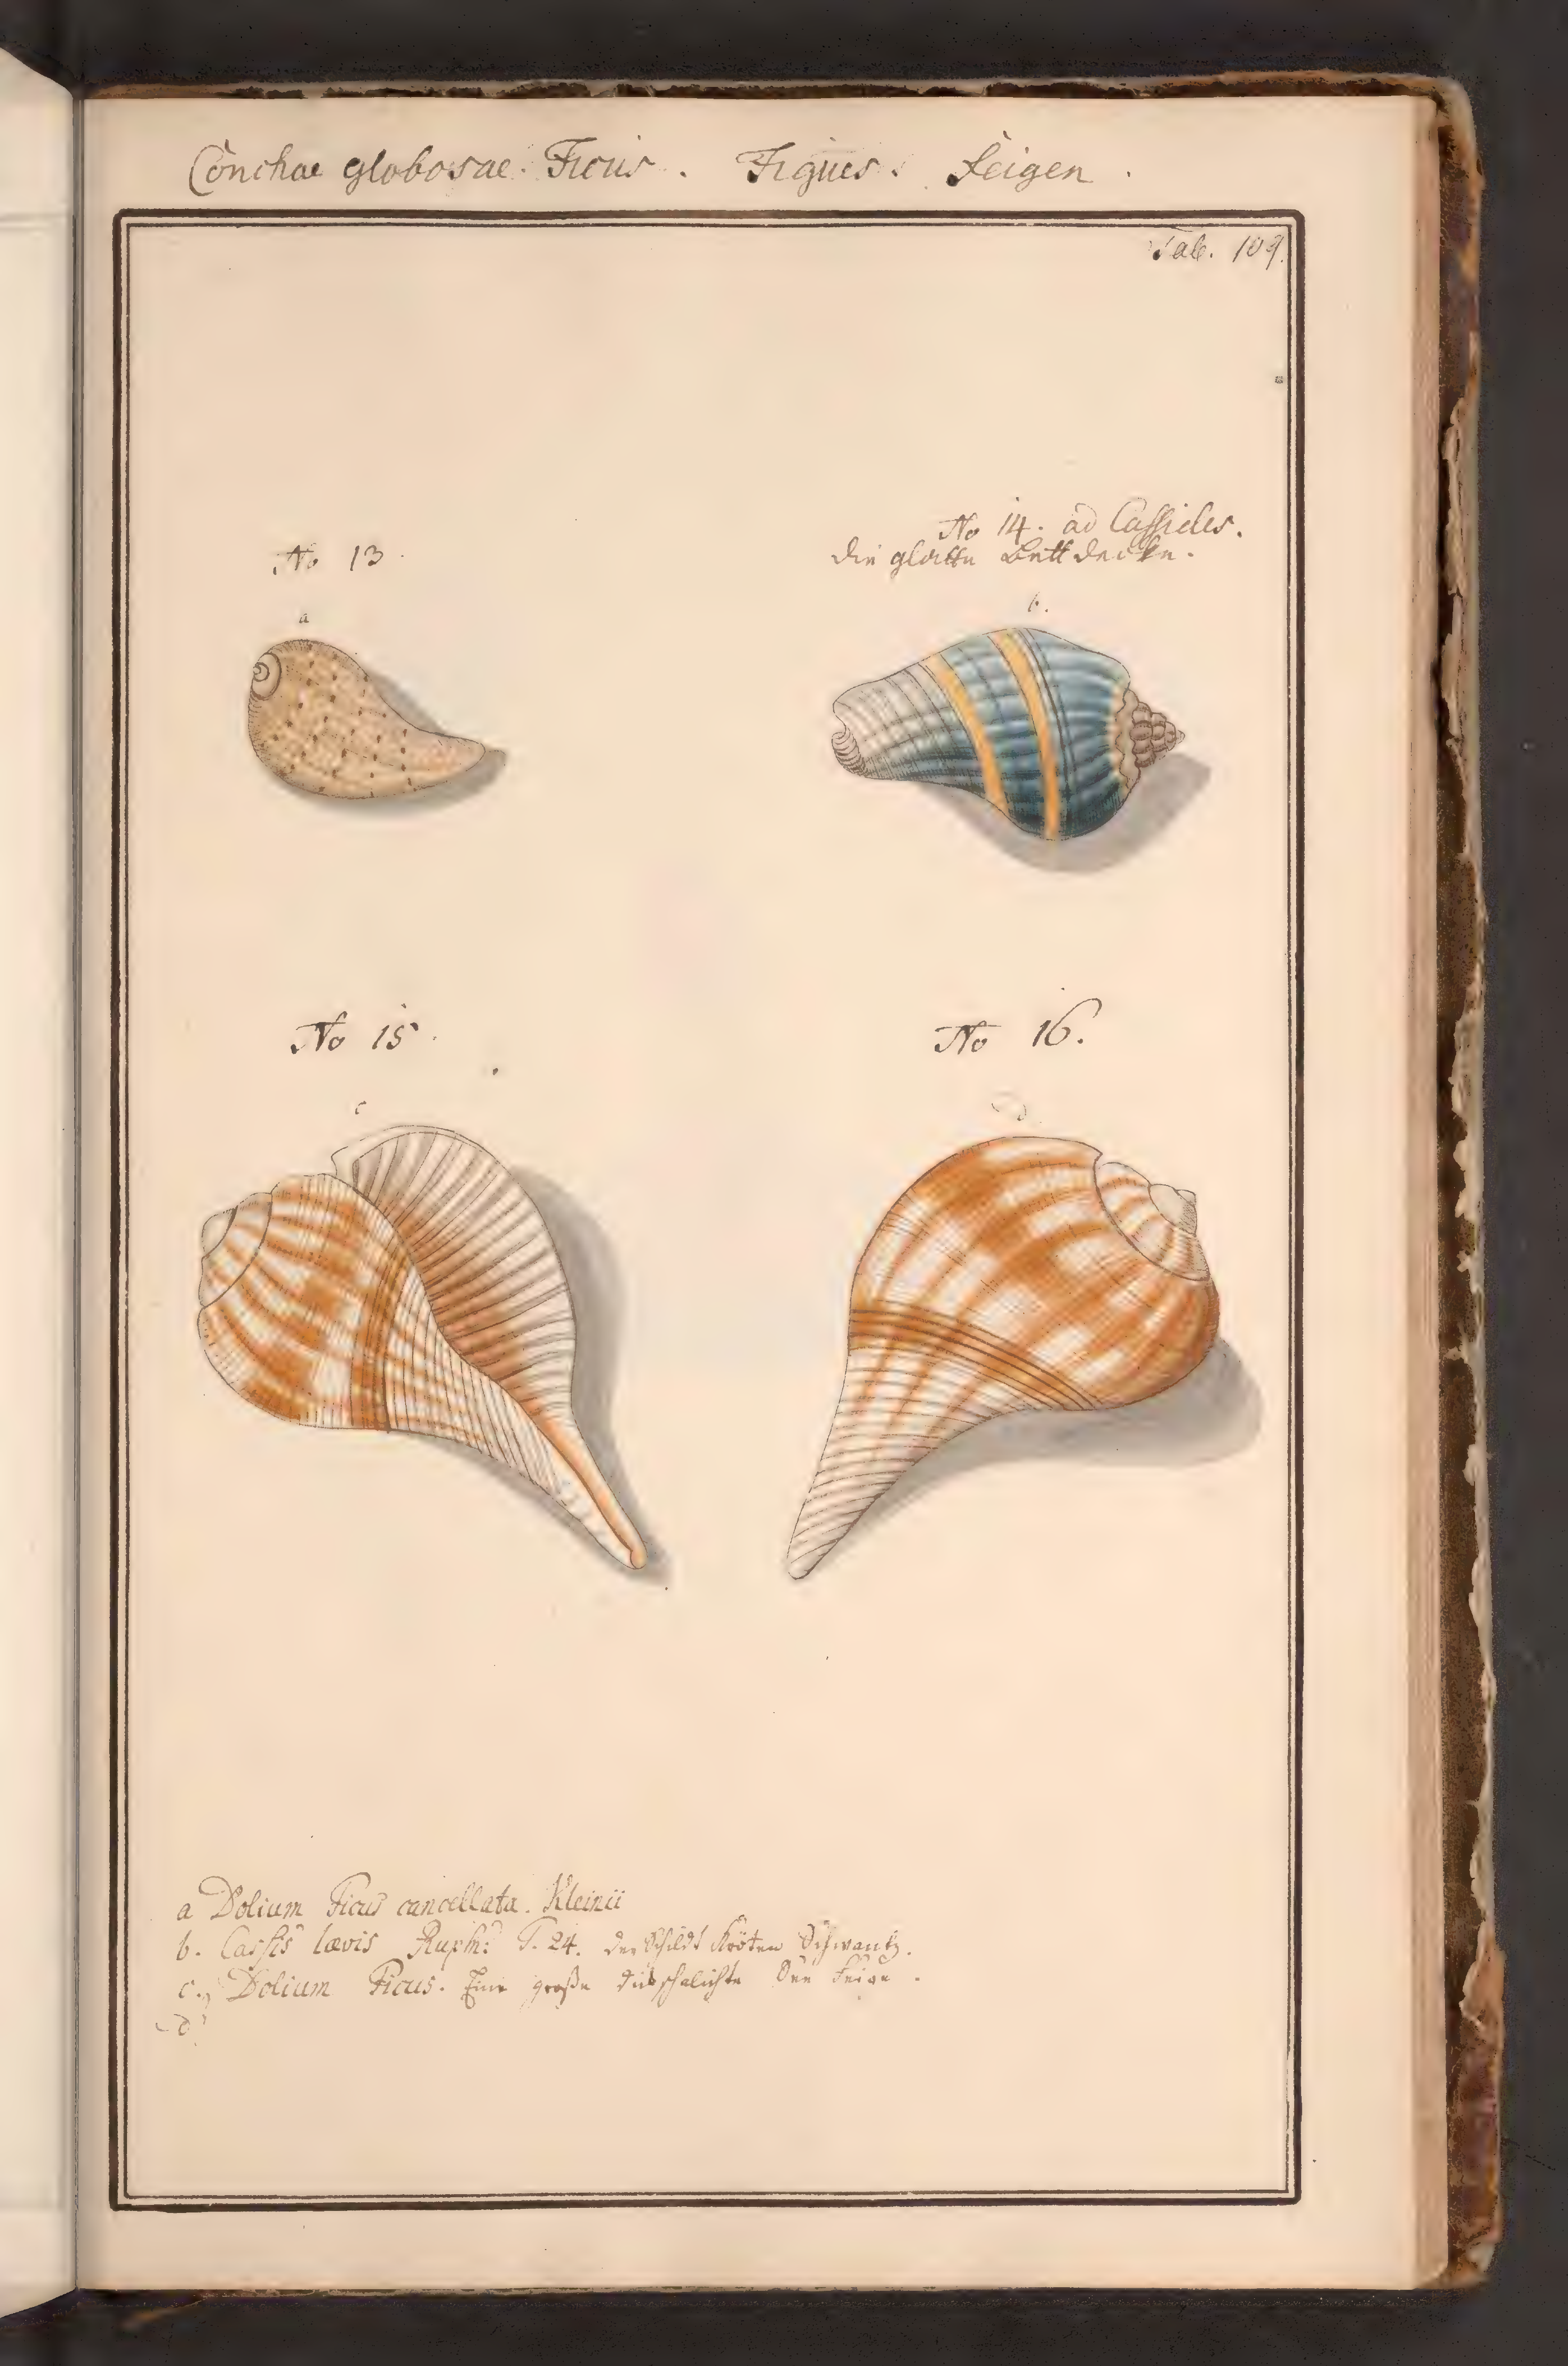 Conchae globosae. Ficus. Figues. Feigen.
Tab. 109.
No 13
No 14. ad Cassides.
die glatte Bettdecke.
a
b.
No 15
No 16.
c
d
a Dolium Ficus cancellata. Kleinii
b. Cassis lævis Rumph: T. 24. der Schildt Kröten Schwantz.
c. Dolium Ficus. Eine große See Feige.
d